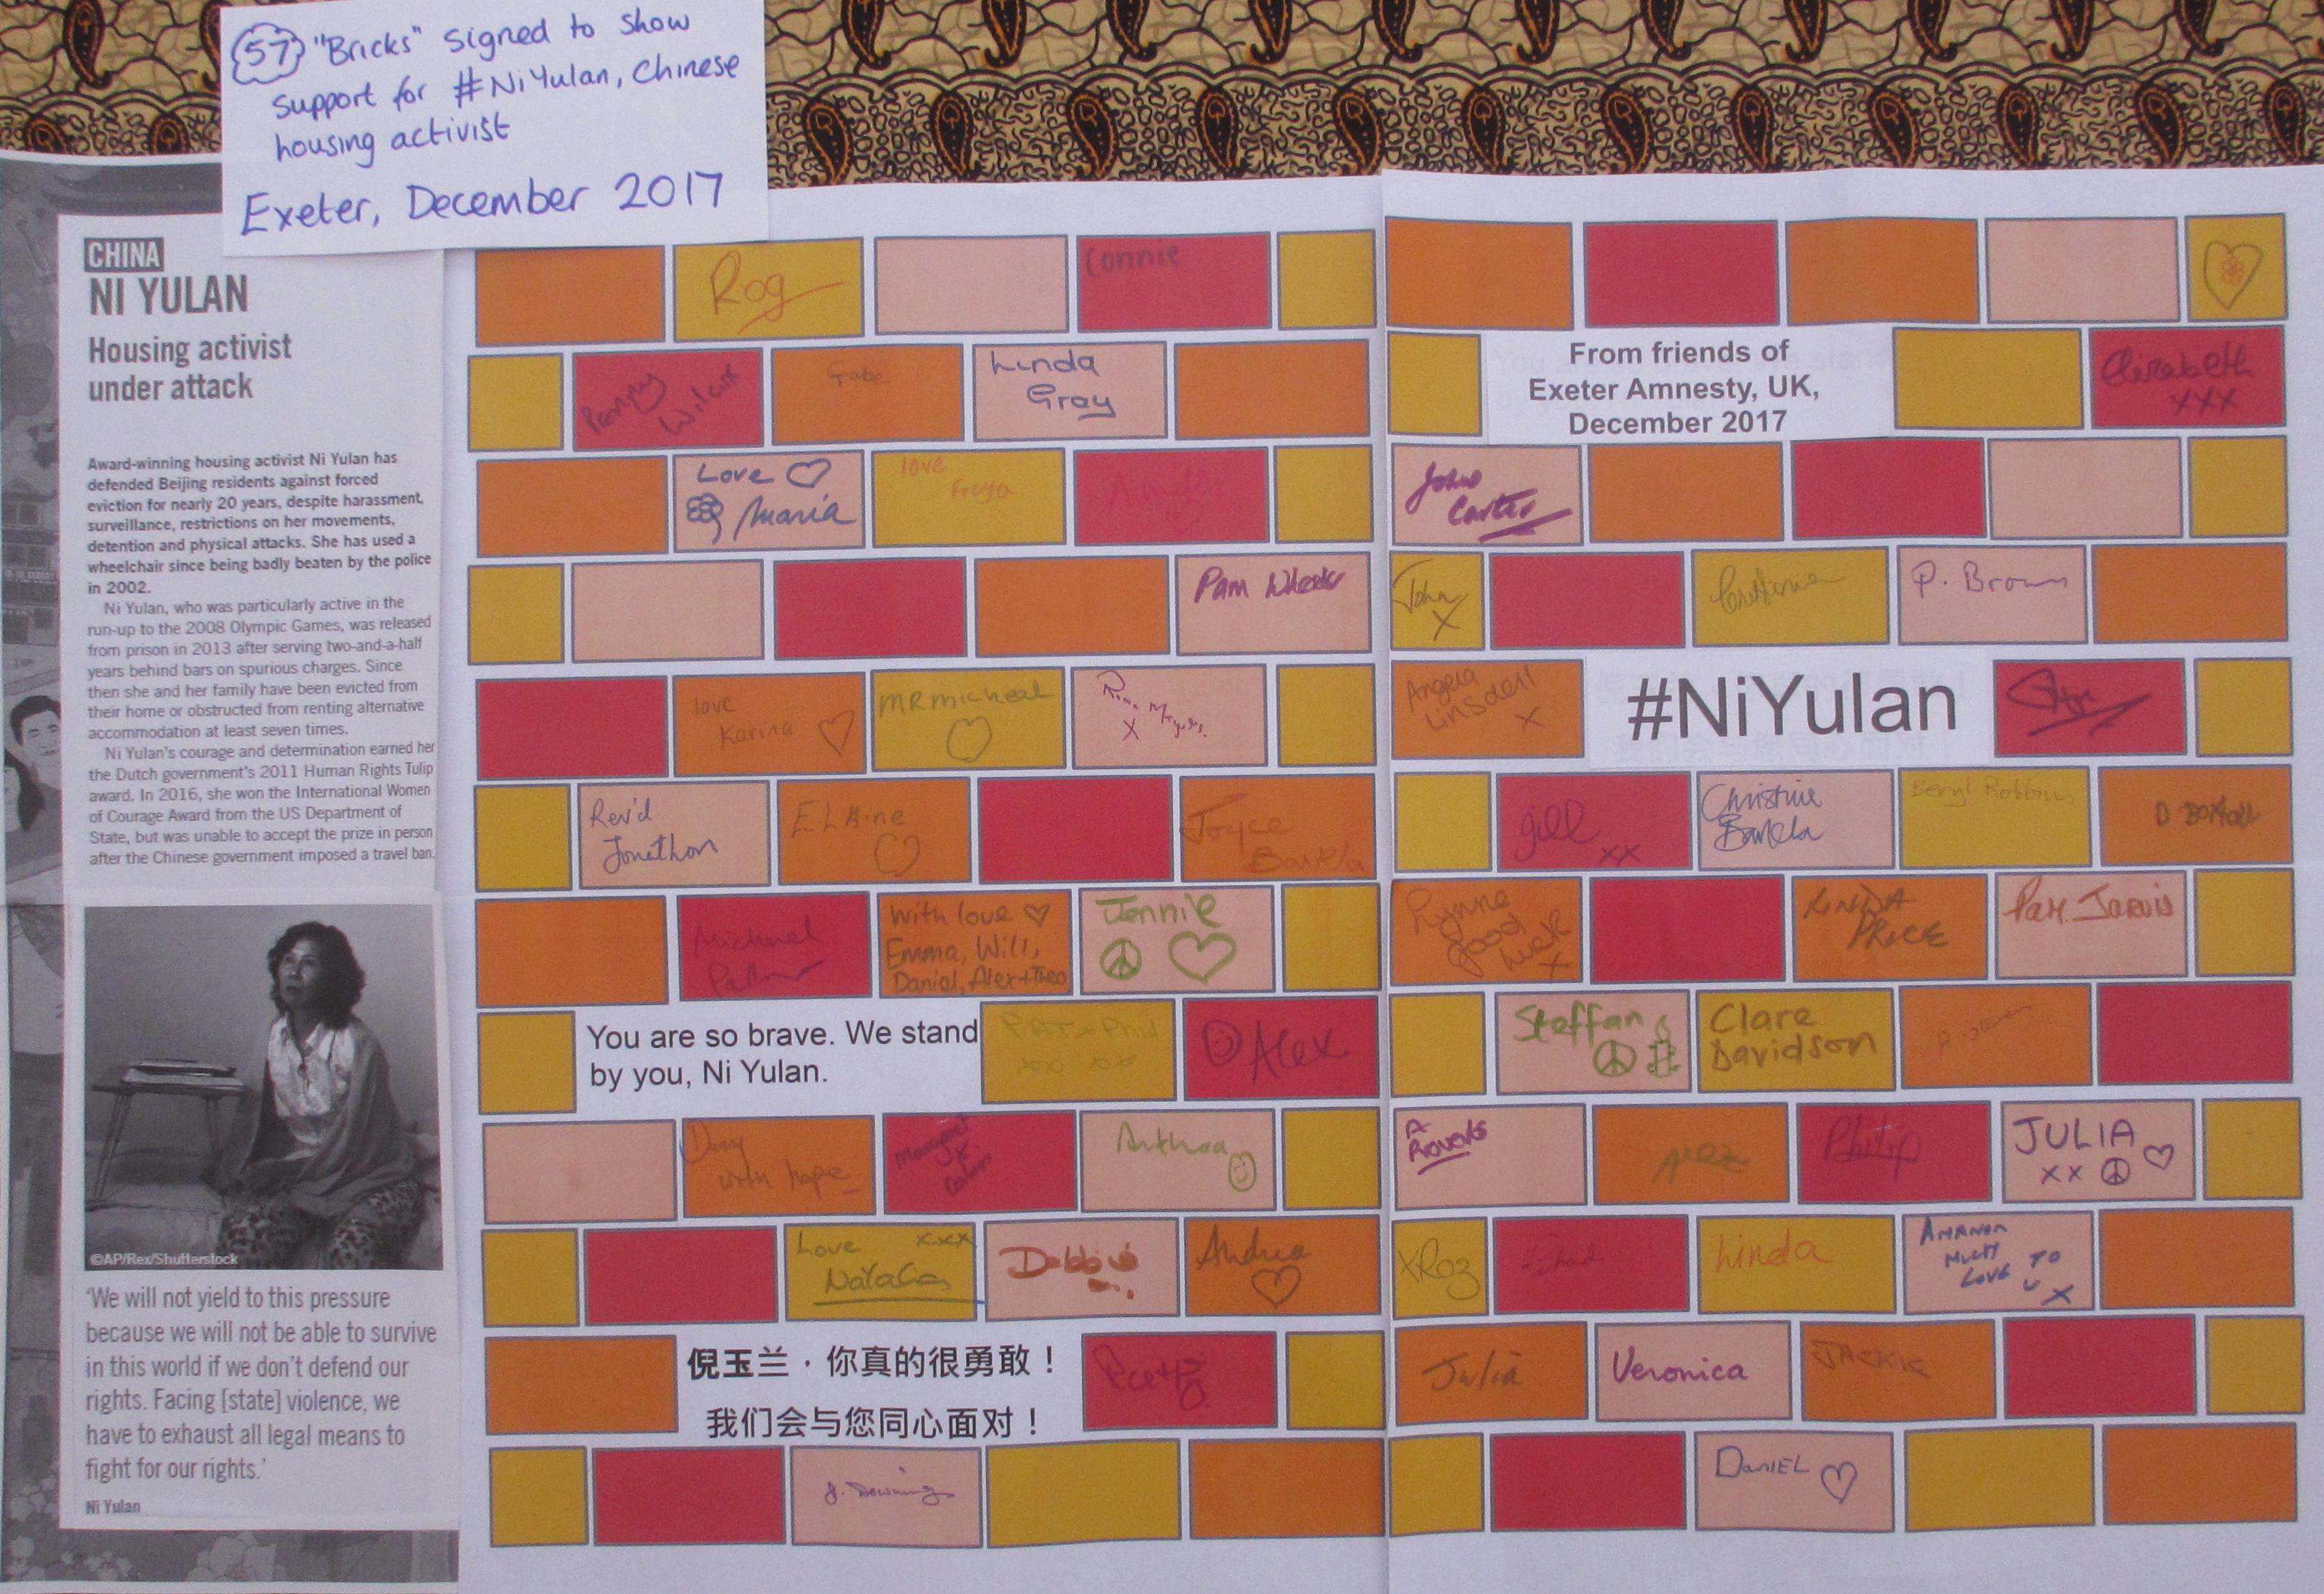 57 "Bricks" signed to show
support for #NiYulan, Chinese
housing activist
Exeter, December 2017
CHINA
NI YULAN
Housing activist
under attack
Award-winning housing activist Ni Yulan has
defended Beijing residents against forced
eviction for nearly 20 years, despite harassment,
surveillance, restrictions on her movements,
detention and physical attacks. She has used a
wheelchair since being badly beaten by the police
in 2002.
Ni Yulan, who was particularly active in the
run-up to the 2008 Olympic Games, was released
from prison in 2013 after serving two-and-a-half
years behind bars on spurious charges. Since
then she and her family have been evicted from
their home or obstructed from renting alternative
accommodation at least seven times.
Ni Yulan's courage and determination earned her
the Dutch government's 2011 Human Rights Tulip
award. In 2016, she won the International Women
of Courage Award from the US Department of
State, but was unable to accept the prize in person
after the Chinese government imposed a travel ban.
©AP/Rex/Shutterstock
'We will not yield to this pressure
because we will not be able to survive
in this world if we don't defend our
rights. Facing [state] violence, we
have to exhaust all legal means to
fight for our rights.'
Ni Yulan
Rog
Connie
Penny
Wilcox
Gabe
Linda
Gray
Love
Maria
love
Freya
Pam
love
Karina
MR micheal
x
Rev'd
Jonathon
ELAine
Joyce
Michael
With love
Emma, Will,
Daniel, Alex + Theo
Jennie
You are so brave. We stand
by you, Ni Yulan.
PAT + Phil
Alex
Danny
with hope
Margaret
Anthea
Love xxx
Natalia
Debbie
Andrea
倪玉兰，你真的很勇敢！
我们会与您同心面对！
J. Downing
From friends of
Exeter Amnesty, UK,
December 2017
Elizabeth
xxx
John
Carter
John
x
P. Brown
Angela
Linsdell
x
#NiYulan
gill
xx
Christine
Beryl Robbins
Lynne
good
luck
x
LINDA
PRICE
Pam Jarvis
Steffan
Clare
Davidson
A
Roberts
Philip
JULIA
xx
XRoz
Linda
AMANDA
MUCH
LOVE TO
U X
Julia
Veronica
JACKIE
DANIEL